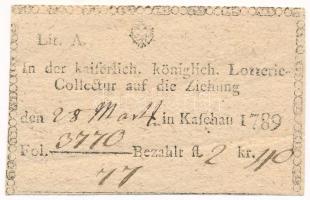 Lit. A.
In der kaiserlich. königlich. Lotterie-
Collectur auf die Ziehung
den 28 Martz in Kaschau 1789
Fol. 3770 Bezahlt fl. 2 kr. 40
77